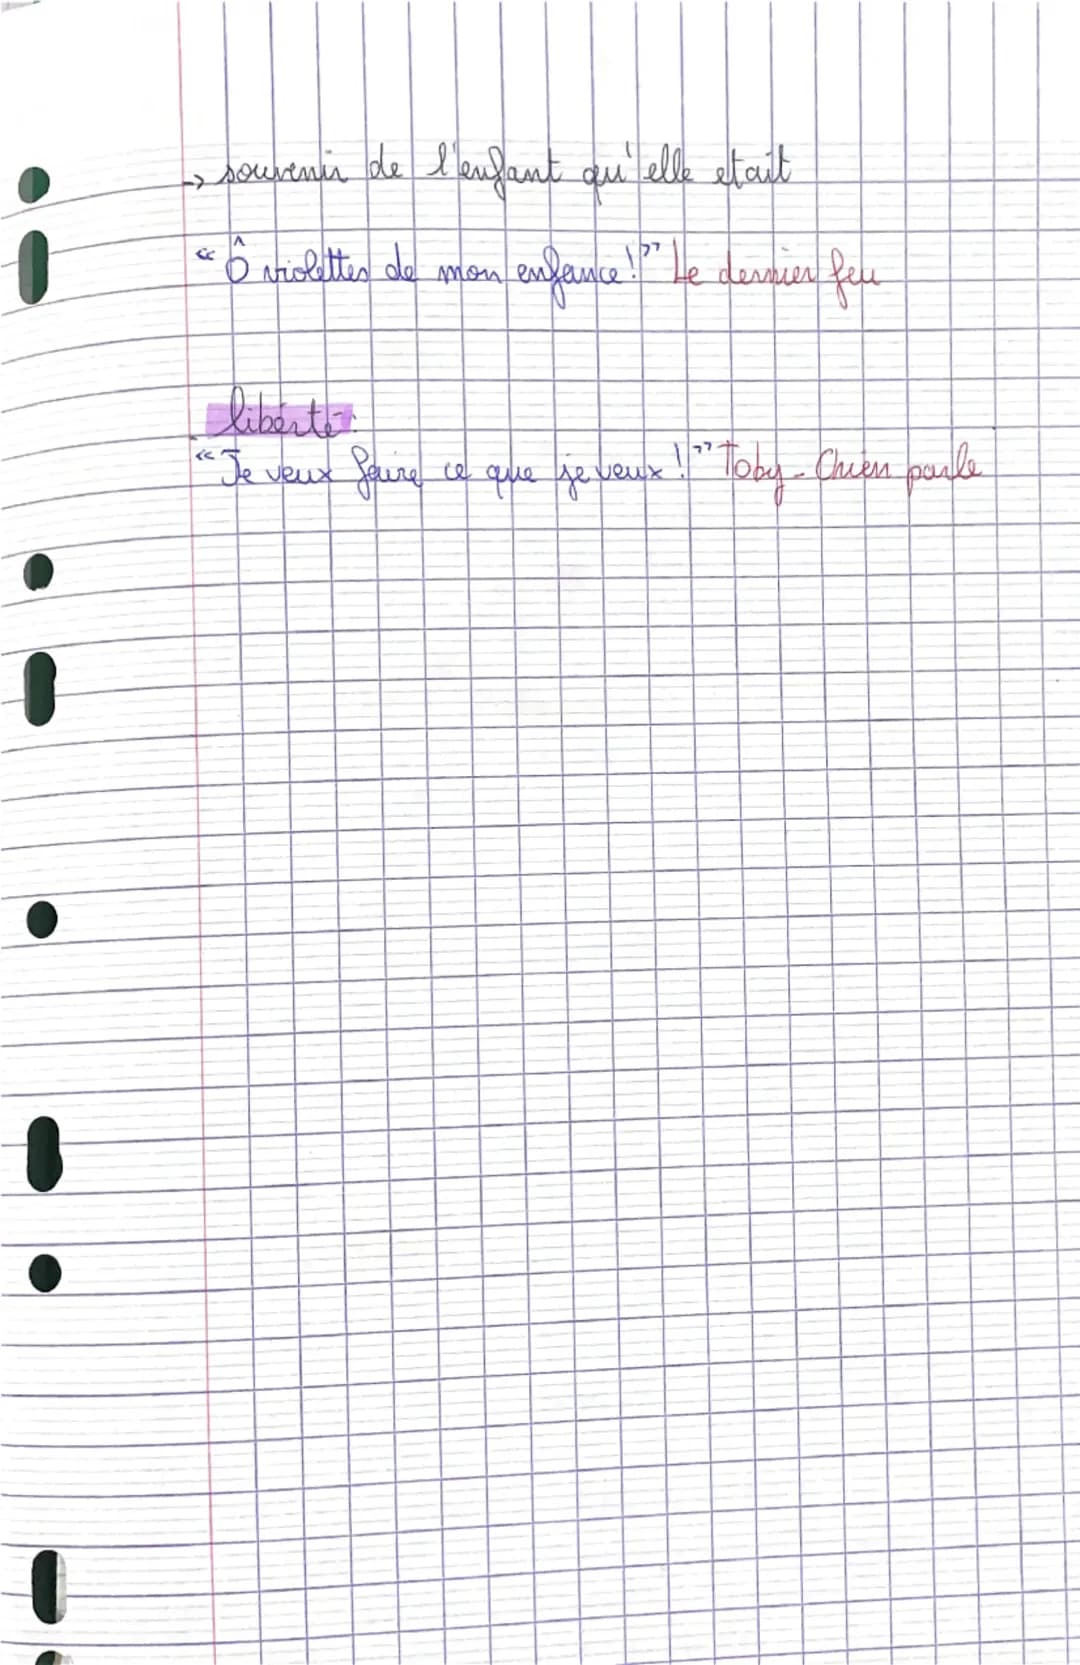 → souvenir de l'enfant qu'elle etait
“Ô violettes de mon enfance!” Le dernier feu
liberté:
“Je veux faire ce que je veux!” Toby-Chien parle